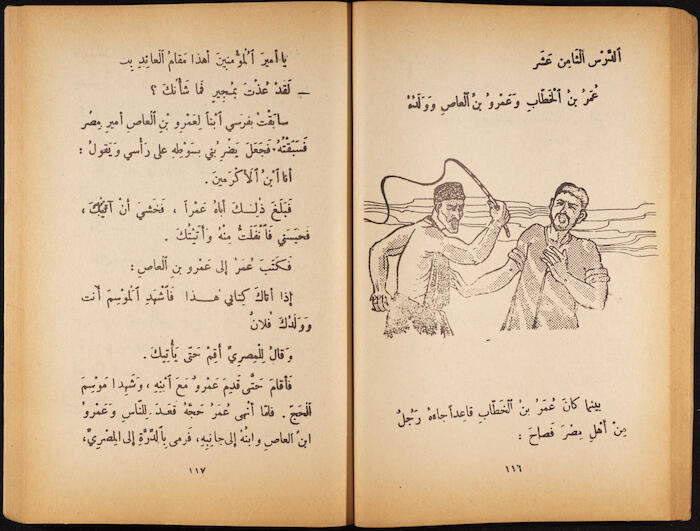 الدَّرْسُ الثَّامِن عَشَر
عُمَرُ بنُ الْخَطَّابِ وَعَمْرُو بنُ الْعاصِ وَوَلَدُهُ
بينما كانَ عُمَرُ بنُ الْخَطَّابِ قاعِداً جاءَهُ رَجُلٌ
مِنْ أَهْلِ مِصْرَ فَصاحَ :
١١٦
يا أَميرَ الْمُؤْمِنِينَ أهذا مَقامُ الْعائِذِ بِكَ
– لَقَدْ عُذْتَ بِمُجِيرٍ فَما شَأْنُكَ ؟
سابَقْتُ بِفَرَسي ابْناً لِعَمْرِو بْنِ الْعاصِ أَميرِ مِصْرَ
فَسَبَقْتُهُ . فَجَعَلَ يَضْرِبُني بِسَوْطِهِ على رَأْسي وَيَقولُ :
أنا ابْنُ الْأَكْرَمينَ .
فَبَلَغَ ذٰلِكَ أَباهُ عَمْراً ، فَخَشِيَ أنْ آتِيَكَ ،
فَحَبَسَني فَانْفَلَتُّ مِنْهُ وَأَتَيْتُكَ .
فَكَتَبَ عُمَرُ إلى عَمْرِو بنِ الْعاصِ :
إذا أتاكَ كِتابي هٰذا فَاشْهَدِ الْمَوْسِمَ أَنْتَ
وَوَلَدُكَ فُلانٌ
وَقالَ لِلْمِصْرِيِّ أَقِمْ حَتَّى يَأْتِيَكَ .
فَأَقامَ حَتَّى قَدِمَ عَمْرٌو مَعَ ابْنِهِ ، وَشَهِدا مَوْسِمَ
الْحَجِّ . فَلَمَّا أَنْهى عُمَرُ حَجَّهُ قَعَدَ لِلنَّاسِ وَعَمْرُو
ابنُ العاصِ وابنُهُ إلى جانِبِهِ ، فَرَمى بِالدِّرَّةِ إلى المِصْرِيِّ ،
١١٧